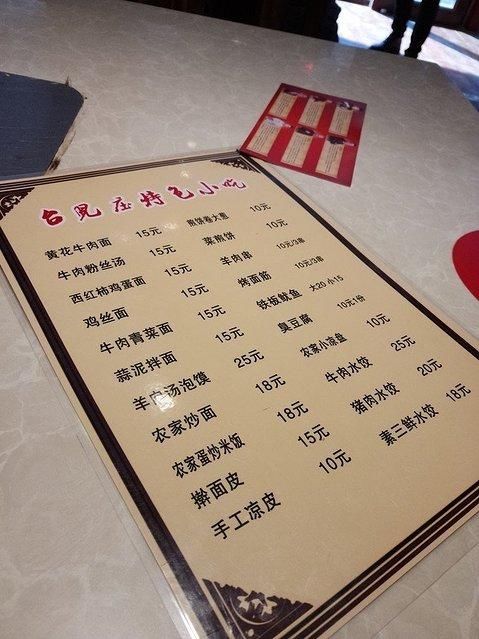 台兒庄特色小吃
黄花牛肉面 15元 煎饼卷大葱 10元
牛肉粉丝汤 15元 菜煎饼 10元
西红柿鸡蛋面 15元 羊肉串 10元/3串
鸡丝面 15元 烤面筋 10元/3串
牛肉青菜面 15元 铁板鱿鱼 大20 小15
蒜泥拌面 15元 臭豆腐 10元1份
羊肉汤泡馍 25元 农家小凉鱼 10元
农家炒面 18元 牛肉水饺 25元
农家蛋炒米饭 18元 猪肉水饺 20元
擀面皮 15元 素三鲜水饺 18元
手工凉皮 10元